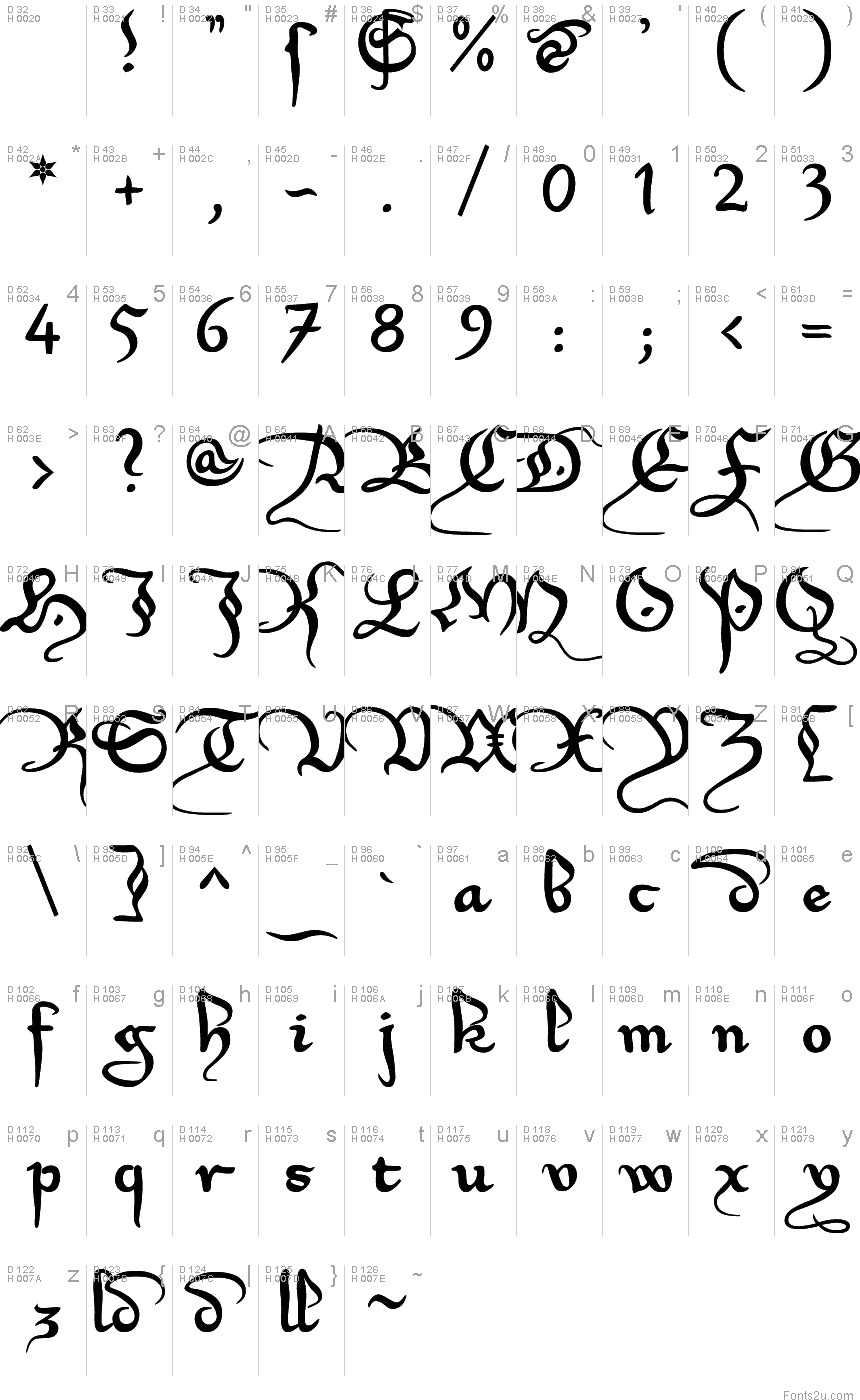 D 32 D 33 ! D 34 " D 35 # D 36 $ D 37 % D 38 & D 39 ' D 40 ( D 41 )
H 0020 H 0021 H 0022 H 0023 H 0024 H 0025 H 0026 H 0027 H 0028 H 0029
! " ſ $ % & ' ( )
D 42 * D 43 + D 44 , D 45 - D 46 . D 47 / D 48 0 D 49 1 D 50 2 D 51 3
H 002A H 002B H 002C H 002D H 002E H 002F H 0030 H 0031 H 0032 H 0033
* + , - . / 0 1 2 3
D 52 4 D 53 5 D 54 6 D 55 7 D 56 8 D 57 9 D 58 : D 59 ; D 60 < D 61 =
H 0034 H 0035 H 0036 H 0037 H 0038 H 0039 H 003A H 003B H 003C H 003D
4 5 6 7 8 9 : ; < =
D 62 > D 63 ? D 64 @ D 65 A D 66 B D 67 C D 68 D D 69 E D 70 F D 71 G
H 003E H 003F H 0040 H 0041 H 0042 H 0043 H 0044 H 0045 H 0046 H 0047
> ? @ A B C D E F G
D 72 H D 73 I D 74 J D 75 K D 76 L D 77 M D 78 N D 79 O D 80 P D 81 Q
H 0048 H 0049 H 004A H 004B H 004C H 004D H 004E H 004F H 0050 H 0051
H I J K L M N O P Q
D 82 R D 83 S D 84 T D 85 U D 86 V D 87 W D 88 X D 89 Y D 90 Z D 91 [
H 0052 H 0053 H 0054 H 0055 H 0056 H 0057 H 0058 H 0059 H 005A H 005B
R S T U V W X Y Z [
D 92 \ D 93 ] D 94 ^ D 95 _ D 96 ` D 97 a D 98 b D 99 c D 100 d D 101 e
H 005C H 005D H 005E H 005F H 0060 H 0061 H 0062 H 0063 H 0064 H 0065
\ ] ^ _ ` a b c d e
D 102 f D 103 g D 104 h D 105 i D 106 j D 107 k D 108 l D 109 m D 110 n D 111 o
H 0066 H 0067 H 0068 H 0069 H 006A H 006B H 006C H 006D H 006E H 006F
f g h i j k l m n o
D 112 p D 113 q D 114 r D 115 s D 116 t D 117 u D 118 v D 119 w D 120 x D 121 y
H 0070 H 0071 H 0072 H 0073 H 0074 H 0075 H 0076 H 0077 H 0078 H 0079
p q r s t u v w x y
D 122 z D 123 { D 124 | D 125 } D 126 ~
H 007A H 007B H 007C H 007D H 007E
z ld d ll ~
Fonts2u.com